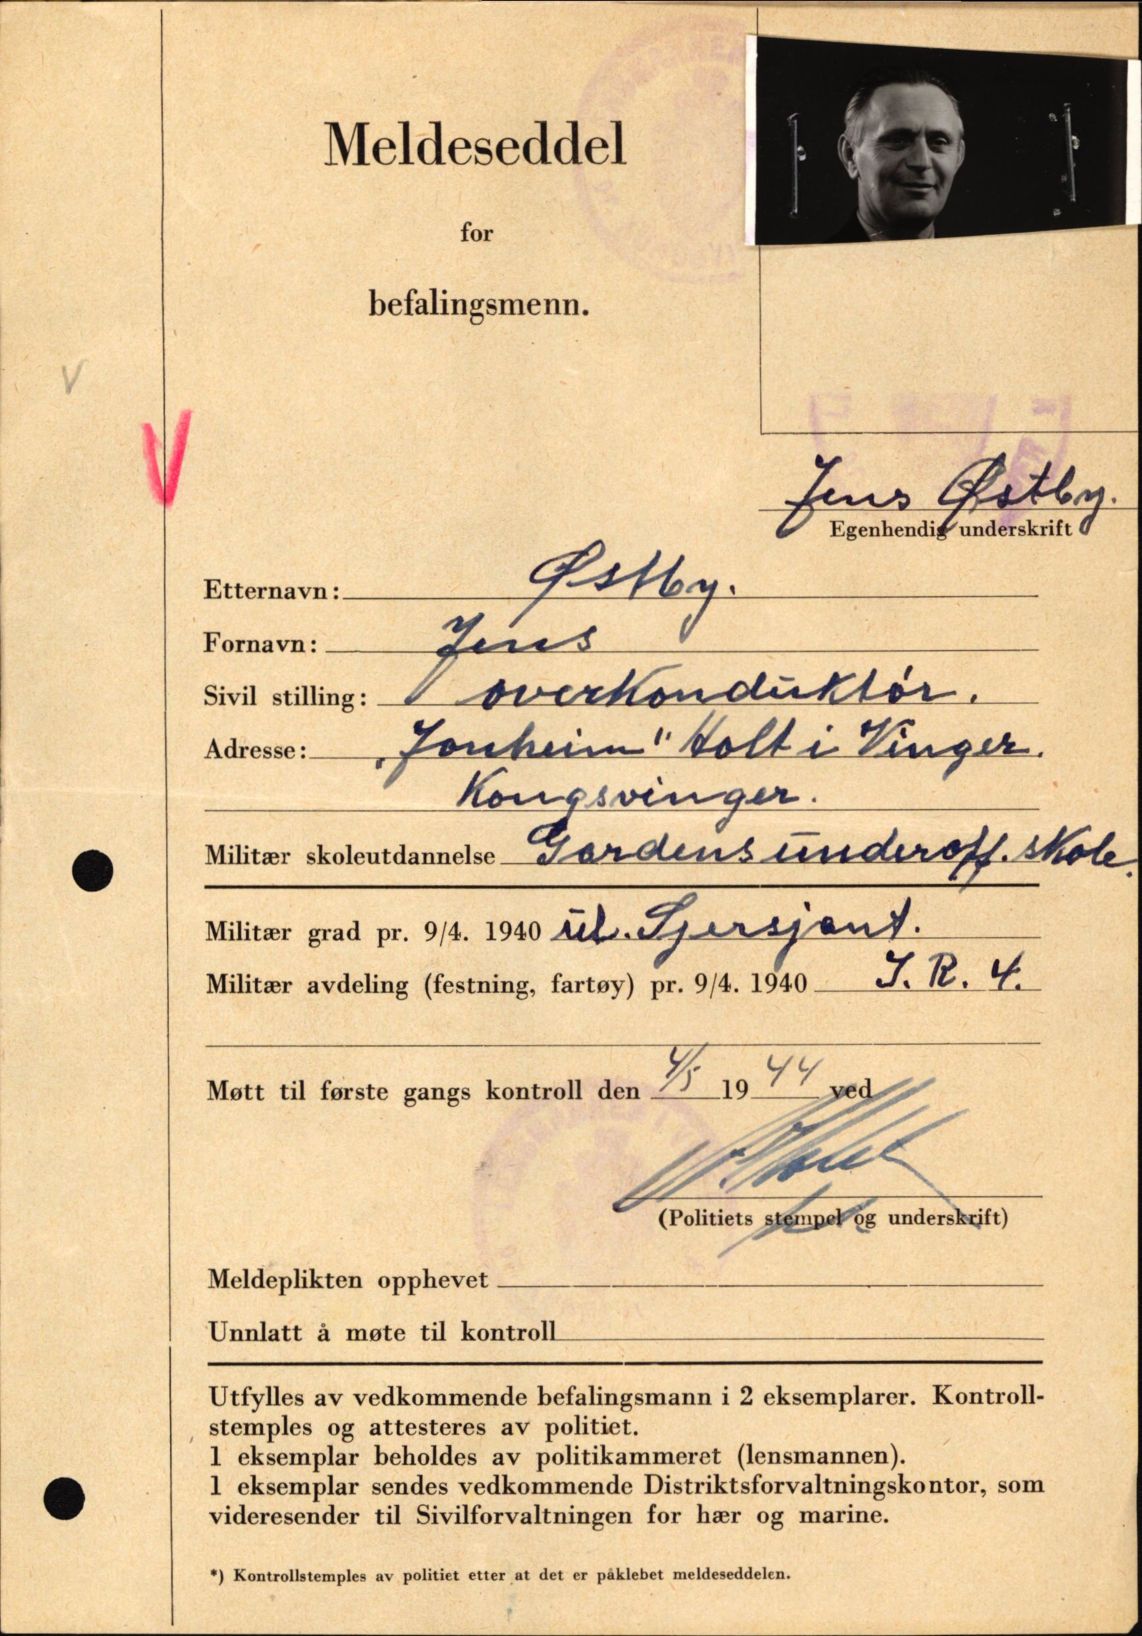 Meldeseddel
for
befalingsmenn.
V
V
Jens Østby.
Egenhendig underskrift
Etternavn: Østby.
Fornavn: Jens
Sivil stilling: overkonduktør.
Adresse: „Jonheim" Holt i Vinger.
Kongsvinger.
Militær skoleutdannelse Gardens underoff. skole.
Militær grad pr. 9/4. 1940 ul. Sjersjant.
Militær avdeling (festning, fartøy) pr. 9/4. 1940 I. R. 4.
Møtt til første gangs kontroll den 4/5 1944 ved
(Politiets stempel og underskrift)
Meldeplikten opphevet
Unnlatt å møte til kontroll
Utfylles av vedkommende befalingsmann i 2 eksemplarer. Kontroll-
stemples og attesteres av politiet.
1 eksemplar beholdes av politikammeret (lensmannen).
1 eksemplar sendes vedkommende Distriktsforvaltningskontor, som
videresender til Sivilforvaltningen for hær og marine.
*) Kontrollstemples av politiet etter at det er påklebet meldeseddelen.